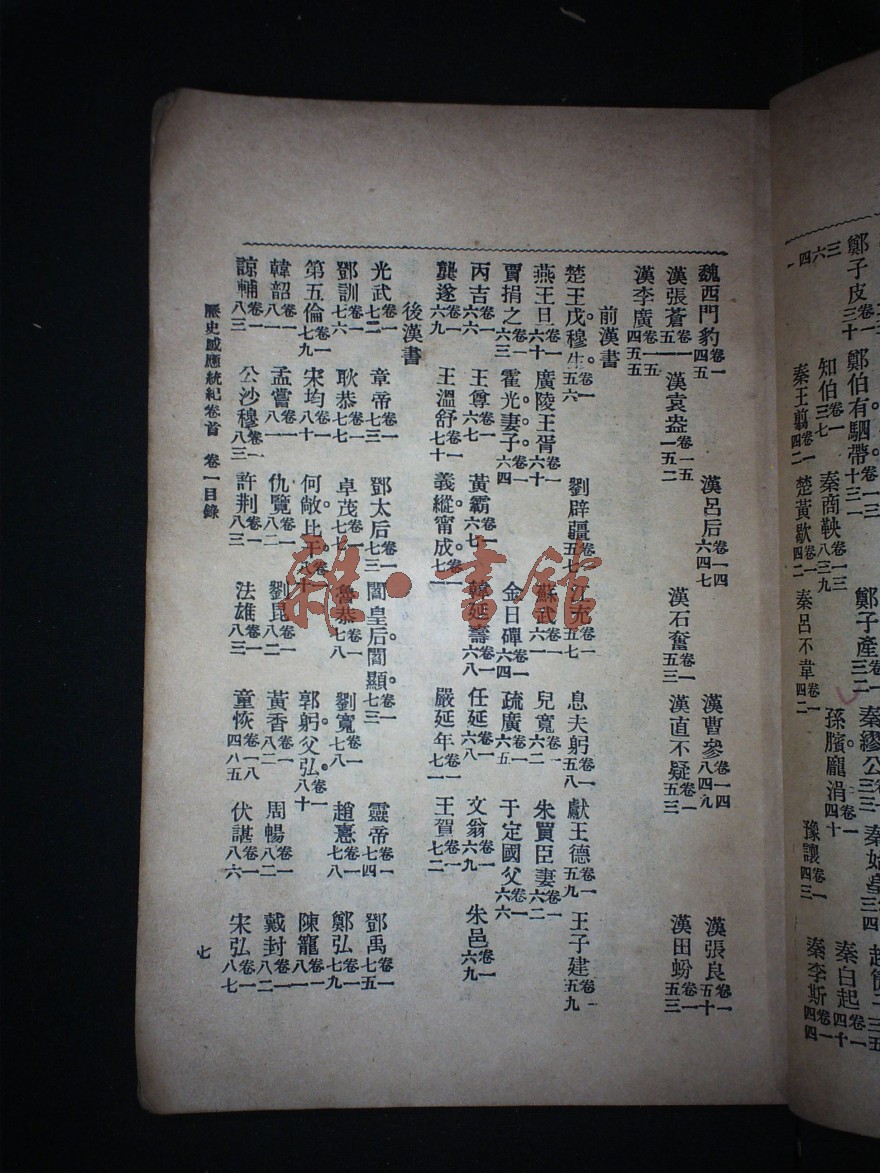 鄭子皮卷一三十 鄭伯有駟帶卷一三十一 鄭子產卷一三二 秦繆公卷一三三 秦始皇卷一三四
知伯卷一三七 秦商鞅卷一三八三九 孫臏龐涓卷一四十 秦白起卷一四十
秦王翦卷一四二 楚黃歇卷一四二 秦呂不韋卷一四二 豫讓卷一四三 秦李斯卷一四四
魏西門豹卷一四五 漢呂后卷一四六四七 漢曹參卷一四八四九 漢張良卷一五十
漢張蒼卷一五一 漢袁盎卷一五一五二 漢石奮卷一五三 漢直不疑卷一五三 漢田蚡卷一五三
漢李廣卷一五四五五
前漢書
楚王戊穆生卷一五六 劉辟疆卷一五七 江充卷一五七 息夫躬卷一五八 獻王德卷一五九 王子建卷一五九
燕王旦卷一六十 廣陵王胥卷一六十 蘇武卷一六一 兒寬卷一六二 朱買臣妻卷一六二
賈捐之卷一六三 霍光妻子卷一六四 金日磾卷一六四 疏廣卷一六五 于定國父卷一六六
丙吉卷一六六 王尊卷一六七 黃霸卷一六七 韓延壽卷一六八 任延卷一六八 文翁卷一六九 朱邑卷一六九
龔遂卷一六九 王溫舒卷一七十 義縱甯成卷一七一 嚴延年卷一七一 王賀卷一七二
後漢書
光武卷一七二 章帝卷一七三 鄧太后卷一七三 閻皇后閻顯卷一七三 靈帝卷一七四 鄧禹卷一七五
鄧訓卷一七六 耿恭卷一七七 卓茂卷一七七 魯恭卷一七八 劉寬卷一七八 趙憙卷一七八 鄭弘卷一七九
第五倫卷一七九 宋均卷一八十 何敞比干卷一八十 郭躬父弘卷一八十 陳寵卷一八一
韓韶卷一八一 孟嘗卷一八一 仇覽卷一八二 劉昆卷一八二 黃香卷一八二 周暢卷一八二 戴封卷一八二
諒輔卷一八三 公沙穆卷一八三 許荆卷一八三 法雄卷一八三 童恢卷一八四八五 伏諶卷一八六 宋弘卷一八七
歷史感應統紀卷首 卷一目錄 七
雜·書館